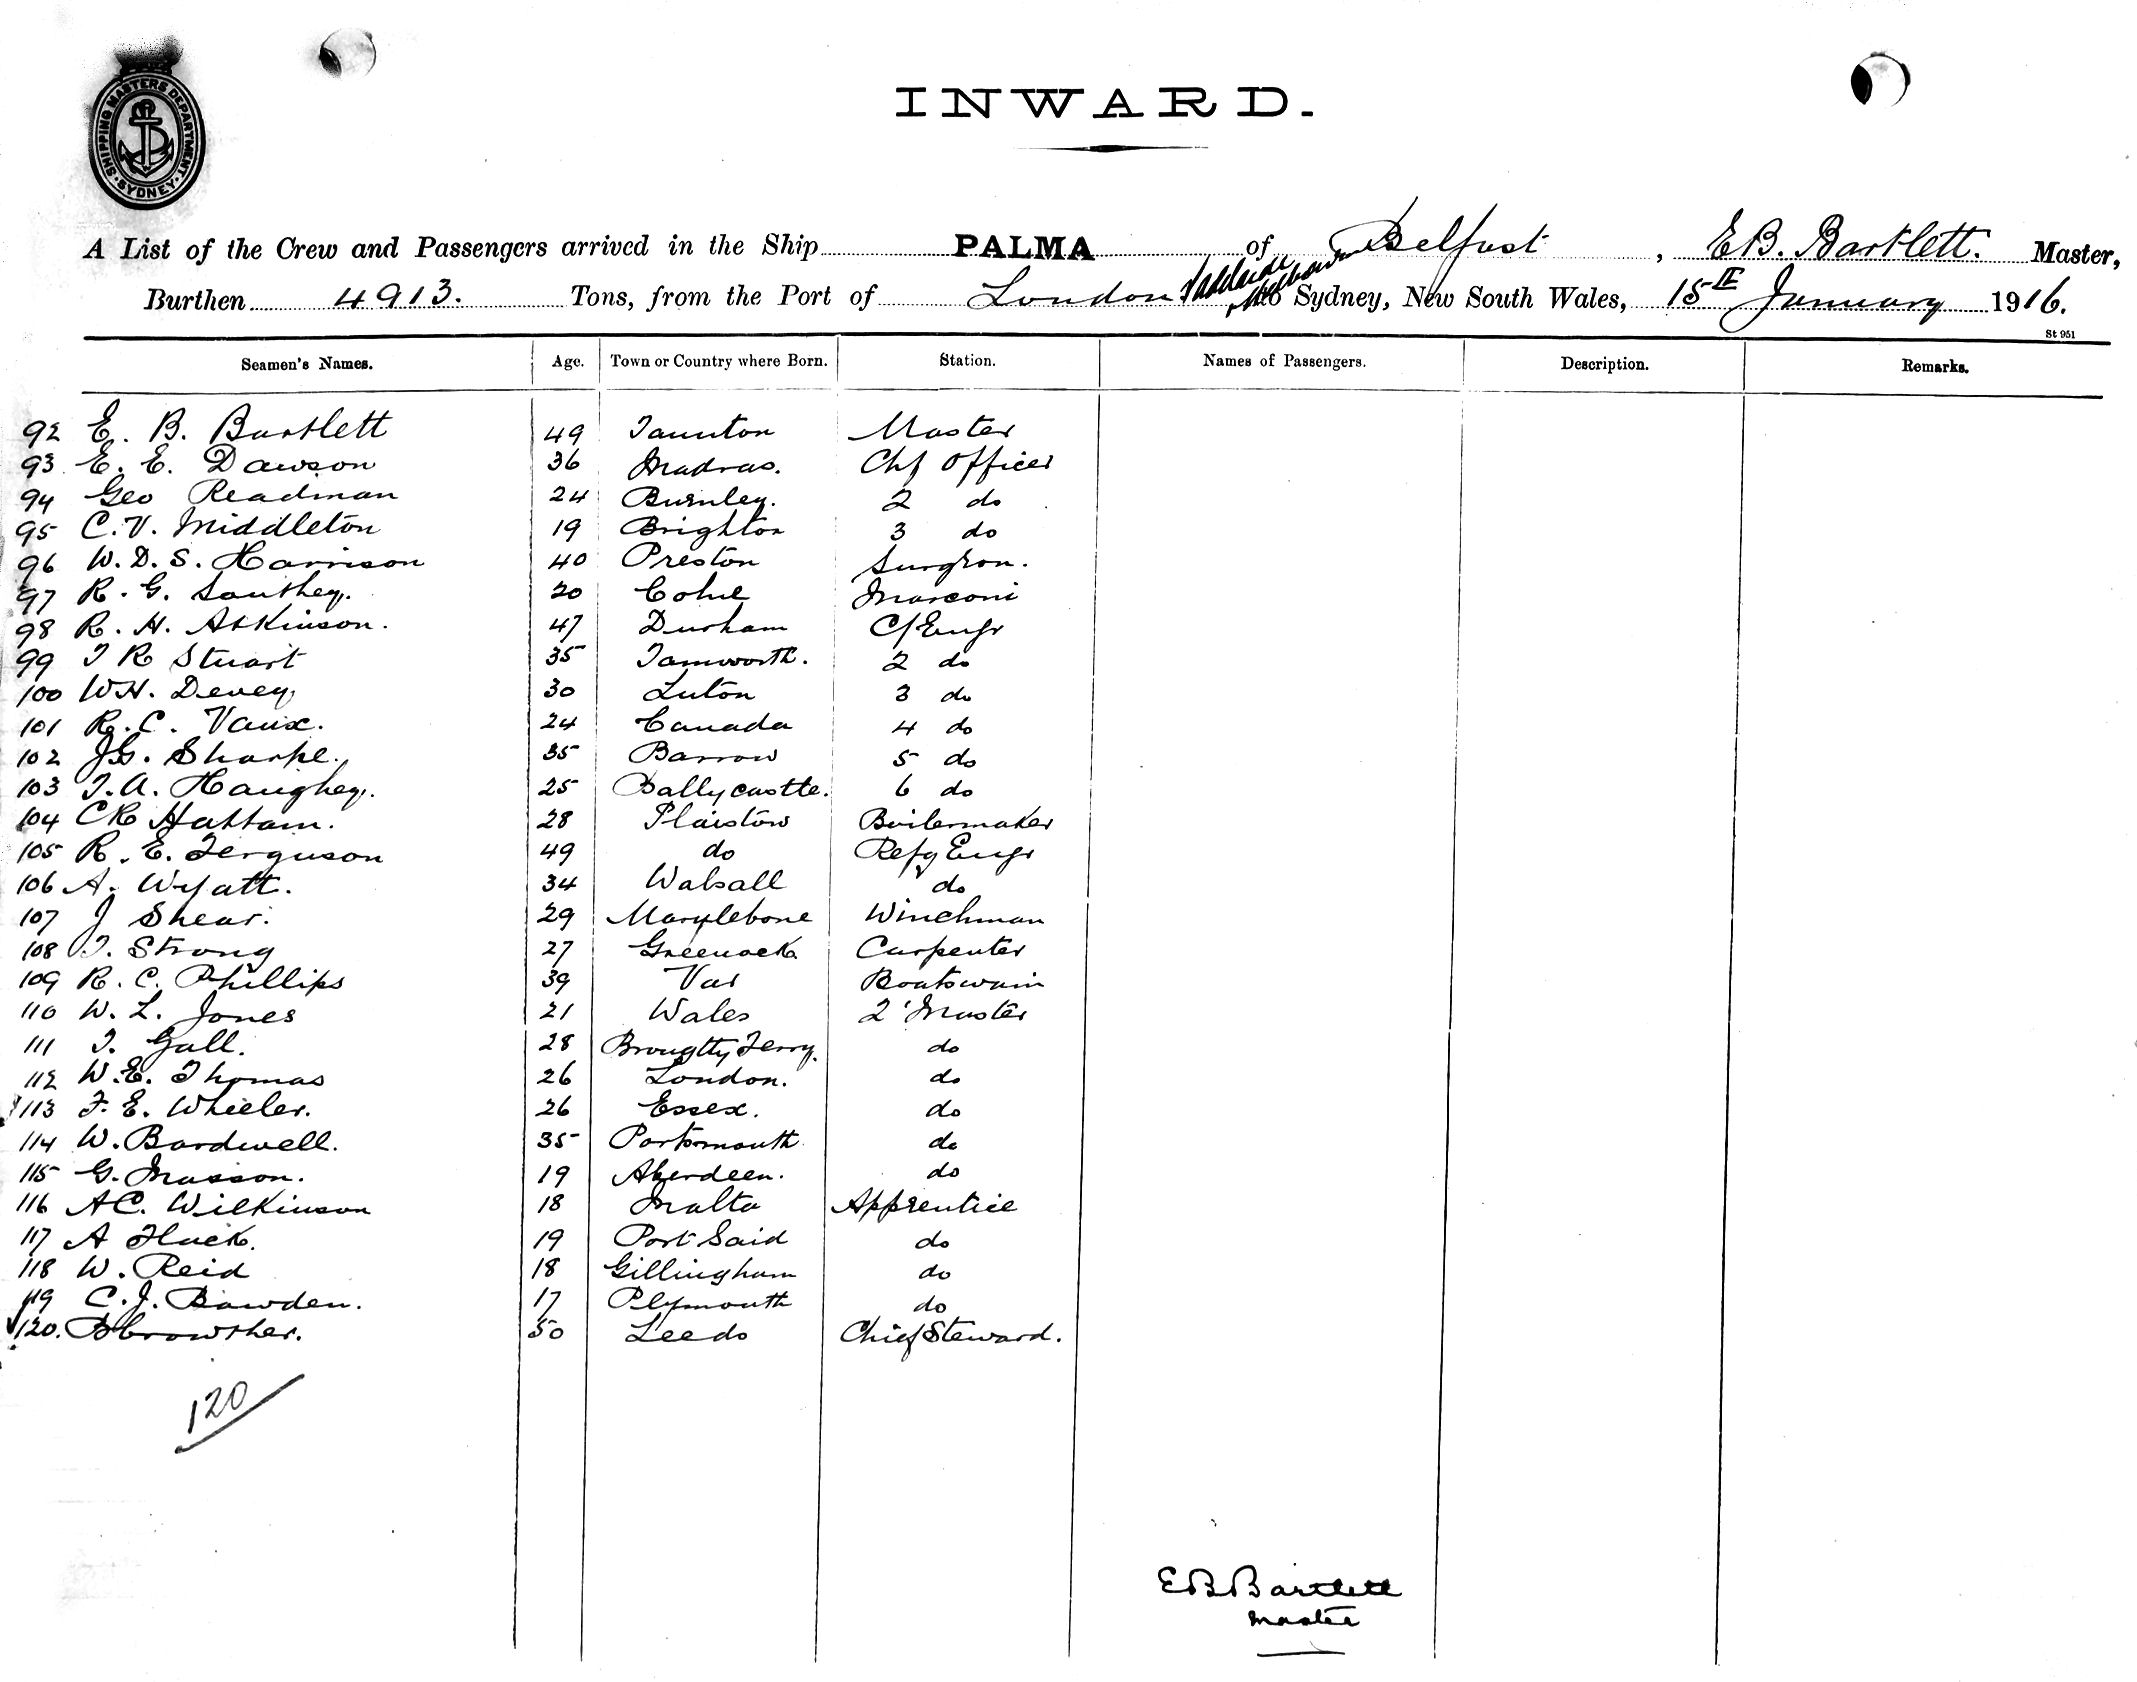 SHIPPING MASTERS DEPARTMENT
SYDNEY
INWARD.
A List of the Crew and Passengers arrived in the Ship PALMA of Belfast, E.B. Bartlett. Master,
Burthen 4913. Tons, from the Port of London Adelaide Melbourne to Sydney, New South Wales, 15th January 1916.
St 951
Seamen's Names. Age. Town or Country where Born. Station. Names of Passengers. Description. Remarks.
92 E. B. Bartlett 49 Taunton Master
93 E. E. Dawson 36 Madras. Chf Officer
94 Geo Readman 24 Burnley. 2 do
95 C. V. Middleton 19 Brighton 3 do
96 W. D. S. Harrison 40 Preston Surgeon.
97 R. G. Southey. 20 Colne Marconi
98 R. H. Atkinson. 47 Durham C/Engr
99 T R Stuart 35 Tamworth. 2 do
100 W H. Devey 30 Luton 3 do
101 R. C. Vaux. 24 Canada 4 do
102 J G. Sharpe. 35 Barrow 5 do
103 T. A. Haughey. 25 Ballycastle. 6 do
104 C R Hattam. 28 Plaistow Boilermaker
105 R. E. Ferguson 49 do Refg Engr
106 A. Wyatt. 34 Walsall do
107 J Shear. 29 Marylebone Winchman
108 T. Strong 27 Greenock Carpenter
109 R. C. Phillips 39 Boatswain
110 W. L. Jones 21 Wales 2' Master
111 T. Gall. 28 Brougtty Ferry. do
112 W. E. Thomas 26 London. do
113 F. E. Wheeler. 26 Essex. do
114 W. Bardwell. 35 Portsmouth do
115 G. Masson. 19 Aberdeen. do
116 A C. Wilkinson 18 Malta Apprentice
117 A Fluck. 19 Port Said do
118 W. Reid 18 Gillingham do
119 C. J. Bowden. 17 Plymouth do
120. B Crowther. 50 Leeds Chief Steward.
120
E B Bartlett
Master